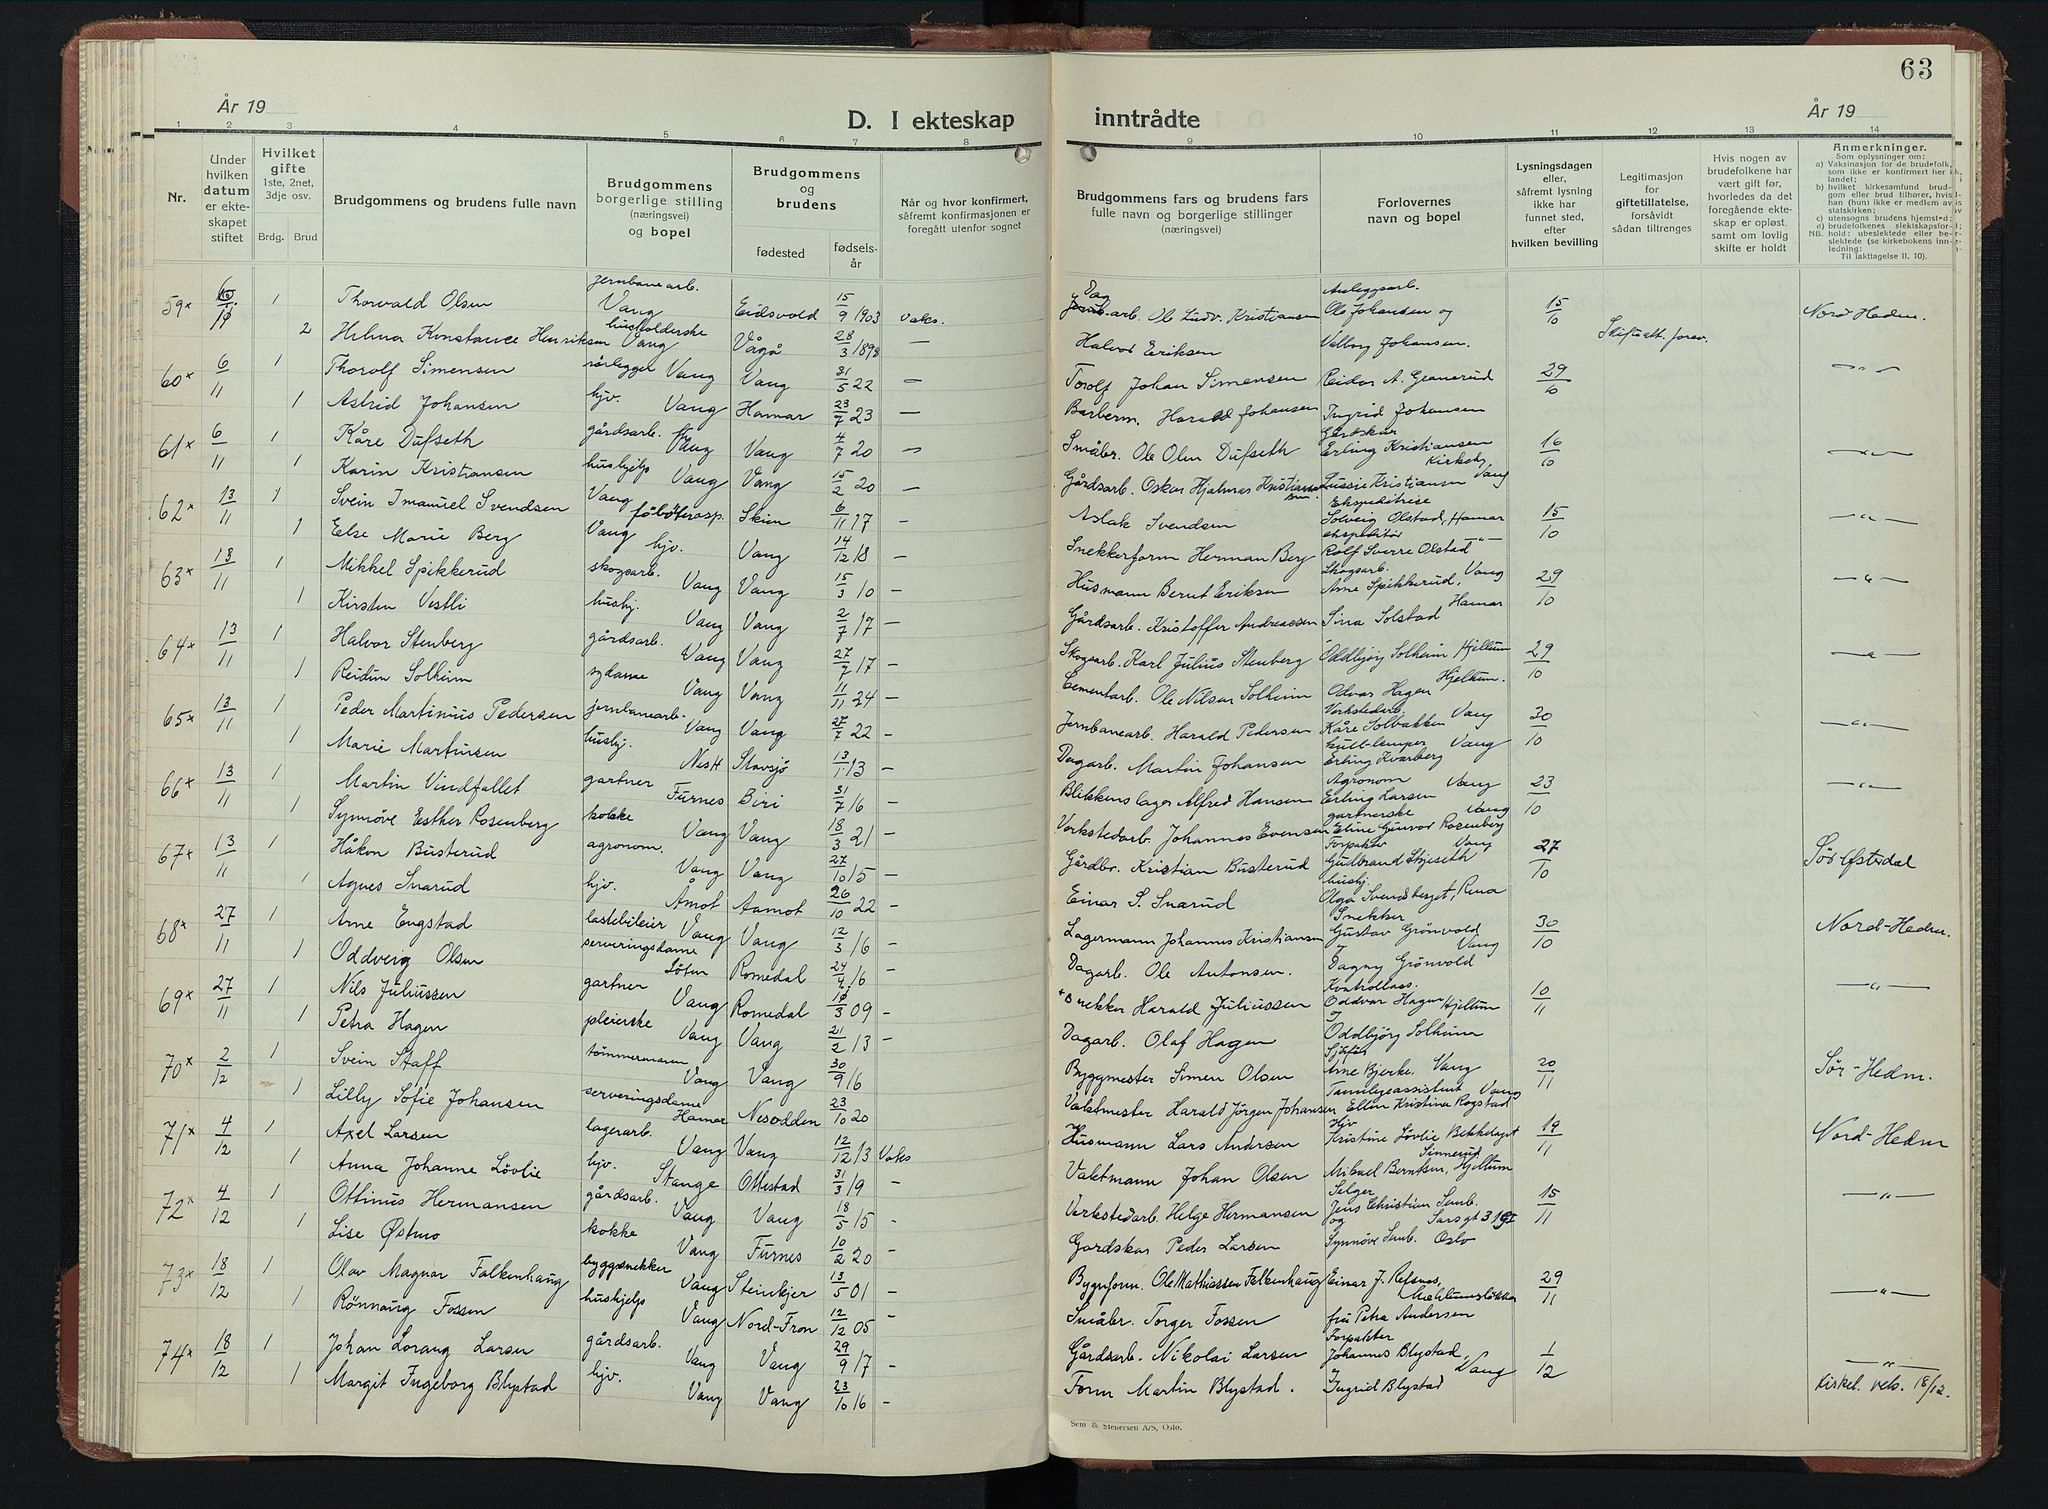 63
År 19
D. I ekteskap
inntrådte
År 19
1 2 3 4 5 6 7 8 9 10 11 12 13 14
Nr.
Under hvilken datum er ekteskapet stiftet
Hvilket gifte
1ste, 2net, 3dje osv.
Brdg. Brud
Brudgommens og brudens fulle navn
Brudgommens borgerlige stilling (næringsvei) og bopel
Brudgommens og brudens
fødested
fødselsår
Når og hvor konfirmert, såfremt konfirmasjonen er foregått utenfor sognet
Brudgommens fars og brudens fars fulle navn og borgerlige stillinger (næringsvei)
Forlovernes navn og bopel
Lysningsdagen eller, såfremt lysning ikke har funnet sted, efter hvilken bevilling
Legitimasjon for giftetillatelse, forsåvidt sådan tiltrenges
Hvis nogen av brudefolkene har vært gift før, hvorledes da det foregående ekteskap er opløst, samt om lovlig skifte er holdt
Anmerkninger.
Som oplysninger om:
59x 6/11 1 Thorvald Olsen jernbanearb. Vang Eidsvold 15/9 1903 Vaks. Dag arb. Ole Ludv. Kristiansen Anleggsarb. Ole Johansen og 15/10 Nord Hedm.
2 Helma Konstance Henriksen husholderske Vang Vågå 28/3 1898 — Halvor Eriksen Valborg Johansen. Skifteatt. forev.
60x 6/11 1 Thorolf Simensen rørlegger Vang Vang 31/5 22 — Torolf Johan Simensen Reidar A. Granerud 29/10 — " —
1 Astrid Johansen hjv. Vang Hamar 23/7 23 — Barberm. Harald Johansen Ingrid Johansen
61x 6/11 1 Kåre Dufseth gårdsarb. Vang Vang 4/7 20 — Småbr. Ole Olsen Dufseth Gårdskar Erling Kristiansen Kirkeby 16/10 — " —
1 Karin Kristiansen hushjelp Vang Vang 15/2 20 — Gårdsarb. Oskar Hjalmar Kristiansen Lussie Kristiansen Vang
62x 13/11 1 Svein Imanuel Svendsen Vang Skien 6/11 17 - Aslak Svendsen Ekspeditrise Solveig Olstad, Hamar 15/10 — " —
1 Else Marie Berg Vang hjv. Vang 14/12 18 - Snekkerform Herman Berg ekspeditør Rolf Sverre Olstad — " —
63x 13/11 1 Mikkel Spikkerud skogsarb. Vang Vang 15/3 10 - Husmann Bernt Eriksen Skogsarb. Arne Spikkerud, Vang 29/10 — " —
1 Kirsten Vestli hushj. Vang Vang 2/7 17 - Gårdsarb. Kristoffer Andreassen Sina Solstad Hamar
64x 13/11 1 Halvor Stenberg gårdsarb. Vang Vang 27/7 17 - Skogarb. Karl Julius Stenberg Oddbjørg Solheim Hjellum 29/10 — " —
1 Reidun Solheim sydame Vang Vang 11/11 24 - Cementarb. Ole Nilsen Solheim Odvar Hagen Hjellum.
65x 13/11 1 Peder Martinius Pedersen jernbanearb. Vang Vang 27/7 22 - Jernbanearb. Harald Pedersen Verkstedarb. Kåre Solbakken Vang 30/10 — " —
1 Marie Martinsen hushj. Nes H Stavsjø 13/1 13 - Dagarb. Martin Johansen Erling Kvarberg Vang
66x 13/11 1 Martin Vindfallet gartner Furnes Biri 31/7 16 - Blikkenslager Alfred Hansen Agronom Erling Larsen Vang 23/10 — " —
1 Synnøve Esther Rosenberg kokke Vang Vang 18/3 21 - Verkstedarb. Johannes Evensen gartnerske Eline Gunvor Rosenberg Vang
67x 13/11 1 Håkon Busterud agronom. Vang Vang 27/10 15 - Gårdbr. Kristian Busterud Forpakter Gulbrand Skjeseth Vang 27/10 Sør Østerdal
1 Agnes Snarud hjv. Åmot Aamot 26/10 22 - Einar S. Snarud hushj. Olga Svendsberget, Rena
68x 27/11 1 Arne Engstad lastebileier Vang Vang 12/3 16 - Lagermann Johannes Kristiansen Snekker Gustav Grönvold 30/10 Nord-Hedm.
1 Oddveig Olsen serveringsdame Löten Romedal 24/4 16 - Dagarb. Ole Antonsen. og Dagny Grönvold Vang
69x 27/11 1 Nils Juliussen gartner Vang Romedal 3 09 - Snekker Harald Juliussen Kontrollass. Oddvar Hagen Hjellum 10/11 — " —
1 Petra Hagen pleierske Vang Vang 21/2 13 - Dagarb. Olaf Hagen og Oddbjörg Solheim
70x 2/12 1 Svein Staff tömmermann Vang Vang 30/9 16 Byggmester Simen Olsen Sjåfør Arne Bjerke. Vang 20/11 Sør-Hedm.
1 Lilly Sofie Johansen serveringsdame Hamar Nesodden 23/10 20 Vaktmester Harald Jörgen Johansen Tannlegeassistent Ellen Kristina Rogstad Vang
71x 4/12 1 Axel Larsen lagerarb. Vang Vang 12/12 13 Vaks Husmann Lars Andersen Hjv Kristine Lövlie Bekkelaget 19/11 Nord-Hedm
1 Anna Johanne Lövlie hjv. Stange Ottestad 31/3 19 - Vaktmann Johan Olsen Mikael Berntsen, Hjellum
72x 4/12 1 Ottinius Hermansen gårdsarb. Vang Vang 18/5 15 - Verkstedarb. Helge Hermansen Selger Jens Christian Semb. 15/11 — " —
1 Lise Østmo kokke Vang Furnes 10/2 20 - Gardskar Peder Larsen og Synnöve Semb. Oslo
73x 18/12 1 Olav Magnar Falkenhaug byggsnekker Vang Steinkjer 13/5 01 - Byggform. Ole Mathiassen Falkenhaug Einar J. Refsnes, 29/11 — " —
1 Rönnaug Fossen hushjelp Vang Nord-Fron 12/12 05 - Småbr. Torger Fossen fru Petra Andersen
74x 18/12 1 Johan Lorang Larsen gårdsarb. Vang Vang 29/9 17 - Gårdsarb. Nikolai Larsen Forpakter Johannes Blystad, 1/12 — " —
1 Margit Ingeborg Blystad hjv. Vang Vang 23/10 16 - Form Martin Blystad. Ingrid Blystad Vang Kirkel. vels. 18/12.
Sem & Stenersen A/S, Oslo.